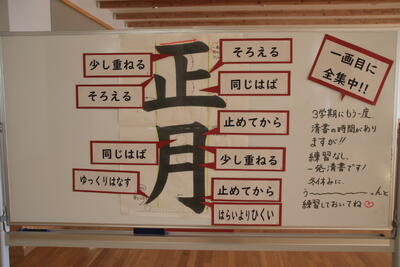 正月
少し重ねる
そろえる
同じはば
ゆっくりはなす
そろえる
同じはば
止めてから
少し重ねる
止めてから
はらいよりひくい
一画目に
全集中!!
3学期にもう一度
清書の時間があり
ますが!!
練習なし
一発清書です!
冬休みに、
う〜〜〜〜〜んと
練習しておいてね♡